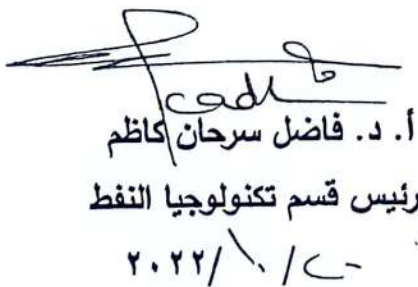 أ. د. فاضل سرحان كاظم
رئيس قسم تكنولوجيا النفط
٢٠٢٢/١٠/٢٠